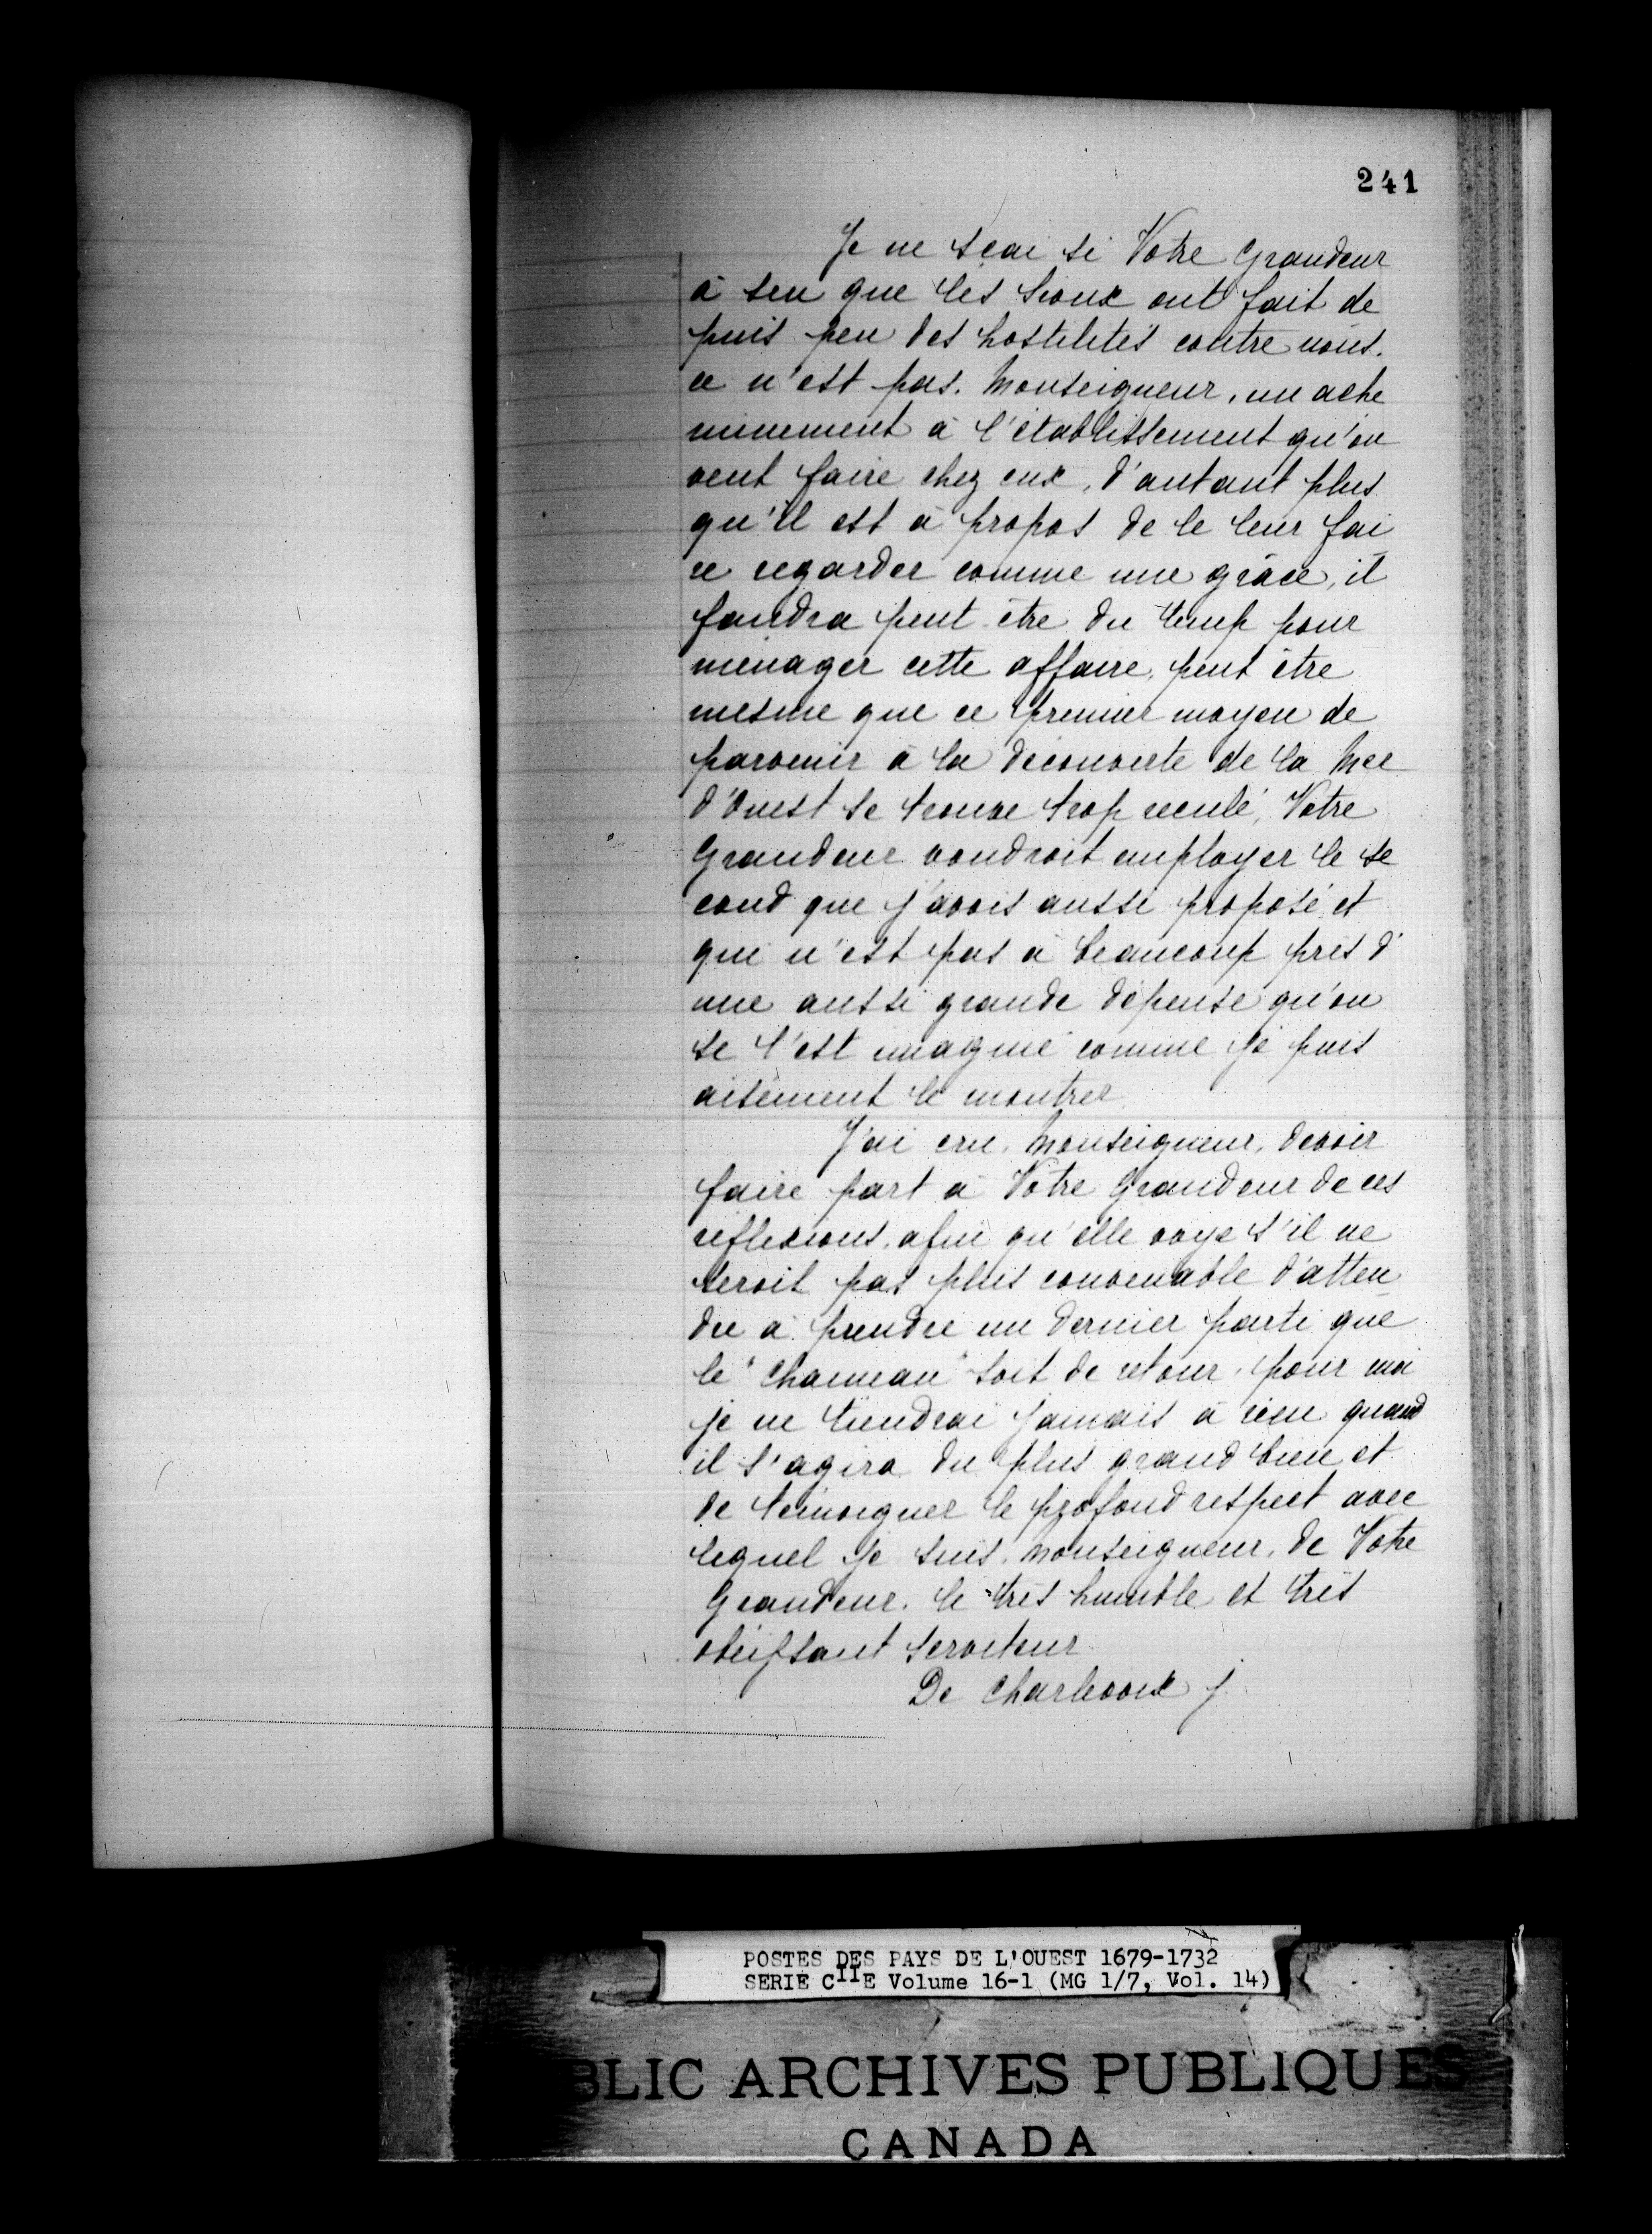 241
Je ne sçai si Votre Grandeur
à seu que les Sioux ont fait de
puis peu des hostilités contre nous.
ce n'est pas. Monseigneur, un ache
minement à l'établissement qu'on
veut faire chez eux, d'autant plus
qu'il est à propos de le leur fai
re regarder comme une grâce, il
faudra peut être du temp pour
ménager cette affaire, peut être
mesme que ce premier moyen de
parvenir à la découverte de la Mer
d'Ouest se trouve trop reculé, Votre
Grandeur voudroit employer le se
cond que j'avois aussi proposé et
qui n'est pas à beaucoup près d'
une aussi grande dépense qu'on
se l'est imaginé comme je puis
aisément le montrer.
J'ai cru, Monseigneur, devoir
faire part à Votre Grandeur de ces
réflexions, afin qu'elle voye s'il ne
seroit pas plus convenable d'atten
dre à prendre un dernier parti que
le "Chameau" soit de retour, pour moi
je ne tiendrai jamais à rien quand
il s'agira du plus grand bien et
de témoigner le profond respect avec
lequel je suis, Monseigneur, de Votre
Grandeur. le très humble et très
obéissant serviteur.
De Charlevoix j.
POSTES DES PAYS DE L'OUEST 1679-1732
SERIE CIIE Volume 16-1 (MG 1/7, Vol. 14)
BLIC ARCHIVES PUBLIQUES
CANADA